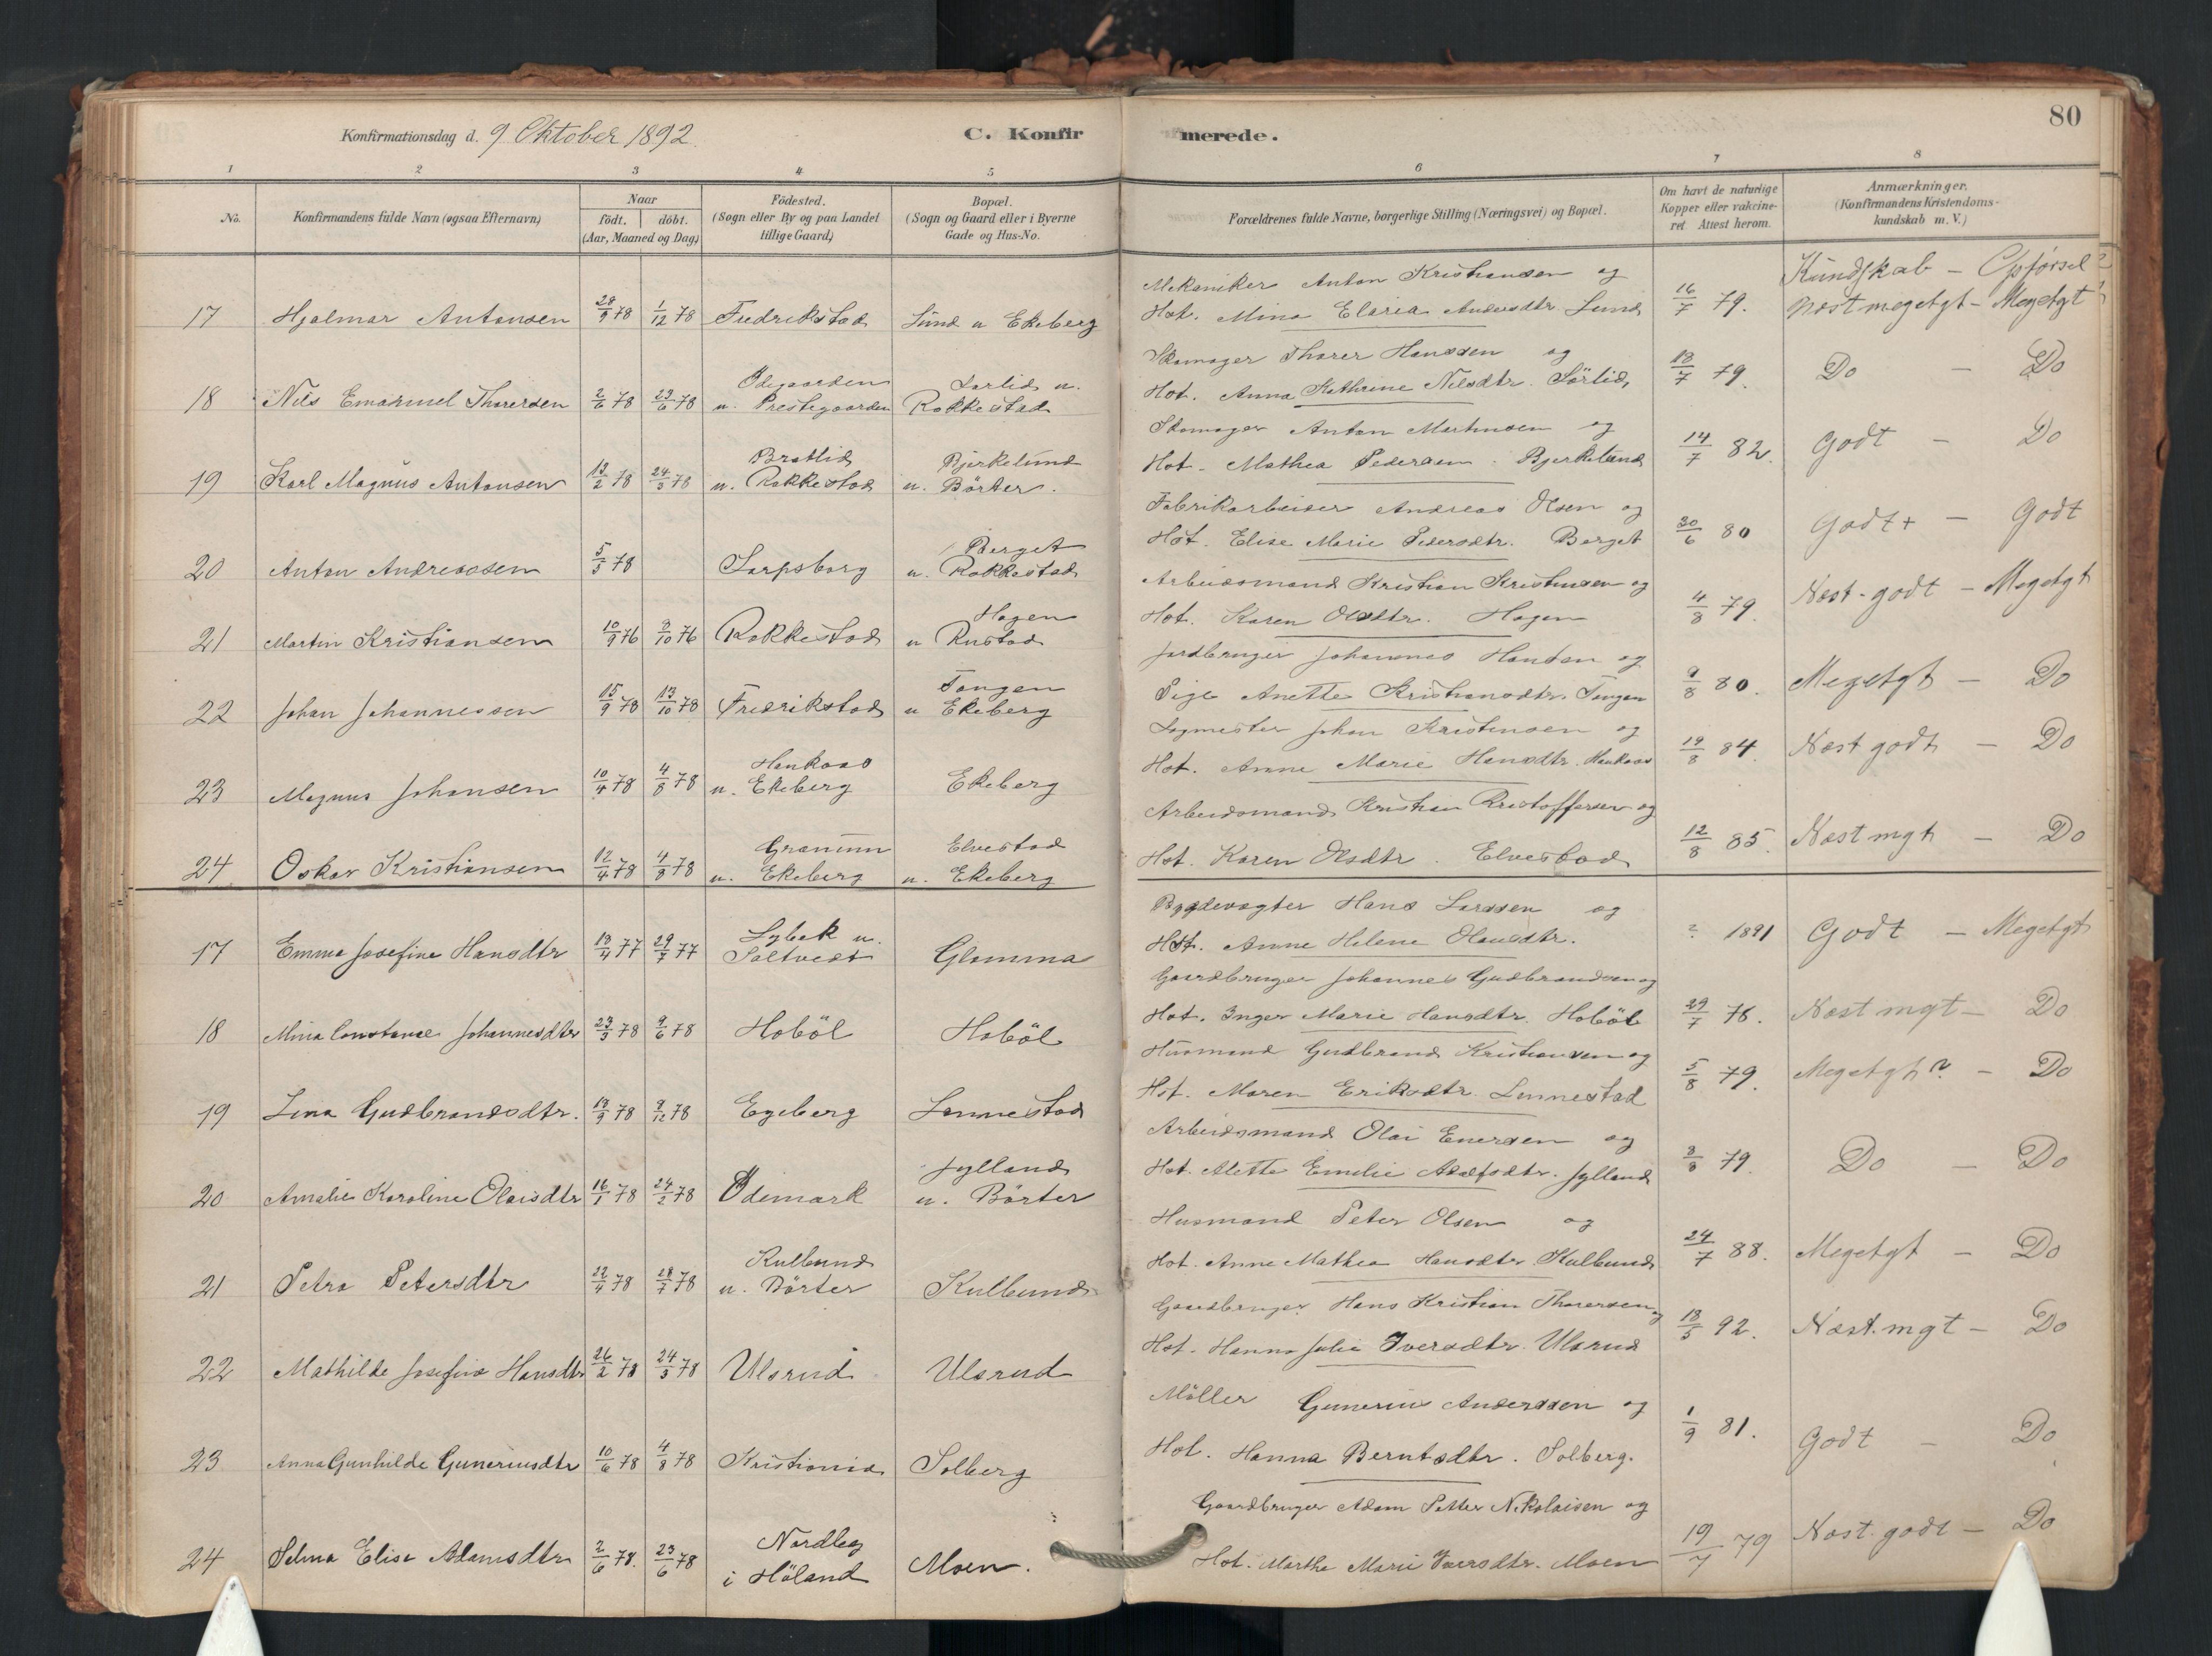 Konfirmationsdag d. 9 Oktober 1892.
C. Konfirmerede.
80
1 2 3 4 5 6 7 8
No.
Konfirmandens fulde Navn (ogsaa Efternavn)
Naar
födt. döbt.
(Aar, Maaned og Dag)
Födested.
(Sogn eller By og paa Landet
tillige Gaard)
Bopæl.
(Sogn og Gaard eller i Byerne
Gade og Hus-No.
Forældrenes fulde Navne, borgerlige Stilling (Næringsvei) og Bopæl.
Om havt de naturlige
Kopper eller vakcine-
ret Attest herom.
Anmærkninger,
(Konfirmandens Kristendoms-
kundskab m. V.)
Kundskab - Opførsel
17 Hjalmar Antonsen 28/9 78 1/12 78 Fredrikstad Lund u Ekeberg
Mekaniker Anton Kristiansen og
Hot. Mina Elaria Andersdtr Lund
16/7 79. Næst megetgt - Megetgt
18 Nils Emanuel Thorersen 2/6 78 23/6 78
Ödegaarden
u. Prestegaarden
Sørlid u.
Rakkestad
Skomager Thorer Hanssen og
Hot. Anna Kathrine Nilsdtr. Sörlid,
18/7 79. Do - Do
19 Karl Magnus Antonsen 13/2 78 24/3 78
Bratlid
u. Rakkestad
Bjerkelund
u. Börter.
Skomager Anton Martinsen og
Hot. Mathea Pedersen. Bjerkelund
14/7 82. Godt - Do
20 Anton Andreassen 5/3 78 Sarpsborg
Berget
u. Rakkestad
Fabrikarbeider Andreas Olsen og
Hot. Elise Marie Pedersdtr. Berget
30/6 80 Godt+ - Godt
21 Martin Kristiansen 10/9 76 8/10 76 Rakkestad
Hagen
u Rustad
Arbeidsmand Kristian Kristensen og
Hot. Karen Olsdtr. Hagen
4/8 79. Næst-godt - Megetgt
22 Johan Johannessen 15/9 78 13/10 78 Fredrikstad
Tangen
u Ekeberg
Jordbruger Johannes Hansen og
Pige Anette Kristiansdtr. Tangen
9/8 80. Megetgt - Do
23 Magnus Johansen 10/4 78 4/8 78
Haukaas
u. Ekeberg
Ekeberg
Sagmester Johan Kristensen og
Hot. Anne Marie Hansdtr. Haukaas
19/8 84. Næst godt - Do
24 Oskar Kristiansen 12/4 78 4/8 78
Granum
u. Ekeberg
Elvestad
u. Ekeberg
Arbeidsmand Kristian Kristoffersen og
Hot. Karen Olsdtr. Elvestad
12/8 85. Næst mgt - Do
17 Emma Josefine Hansdtr 18/4 77 29/7 77
Lybek u.
Saltvedt
Glomma
Bygdevogter Hans Larssen og
Hot. Anne Helene Hansdtr.
? 1891 Godt - Megetgt
18 Mina Constance Johannesdtr 23/3 78 9/6 78 Hoböl Hoböl
Gaardbruger Johannes Gudbrandsen og
Hot. Inger Marie Hansdtr. Hoböl
29/7 78. Næst mgt - Do
19 Lina Gudbrandsdtr. 18/9 78 8/12 78 Egeberg Lennestad
Husmand Gudbrand Kristiansen og
Hot. Maren Eriksdtr. Lennestad
5/8 79. Megetgt? - Do
20 Amalie Karoline Olaisdtr 16/1 78 24/2 78 Ödemark
Jylland
u. Börter
Arbeidsmand Olai Enersen og
Hot. Alette Emilie Adolfsdtr. Jylland
8/8 79. Do - Do
21 Petra Petersdtr 22/4 78 28/7 78
Kulbund
u. Börter
Kulbund
Husmand Peter Olsen og
Hot. Anne Mathea Hansdtr Kulbund
24/7 88. Megetgt - Do
22 Mathilde Josefine Hansdtr 26/2 78 24/3 78 Ulsrud Ulsrud
Gaardbruger Hans Kristian Thorersen og
Hot. Hanna Julie Iversdtr. Ulsrud
18/5 92. Næst. mgt - Do
23 Anna Gunhilde Guneriusdtr 10/6 78 4/8 78 Kristiania Solberg
Möller Gunerius Anderssen og
Hot. Hanna Berntsdtr. Solberg.
1/9 81. Godt - Do
24 Selma Elise Adamsdtr 2/6 78. 23/6 78
Nordleg
i Höland
Moen.
Gaardbruger Adam Petter Nikolaisen og
Hot. Marthe Marie Iversdtr. Moen
19/7 79 Næst godt - Do